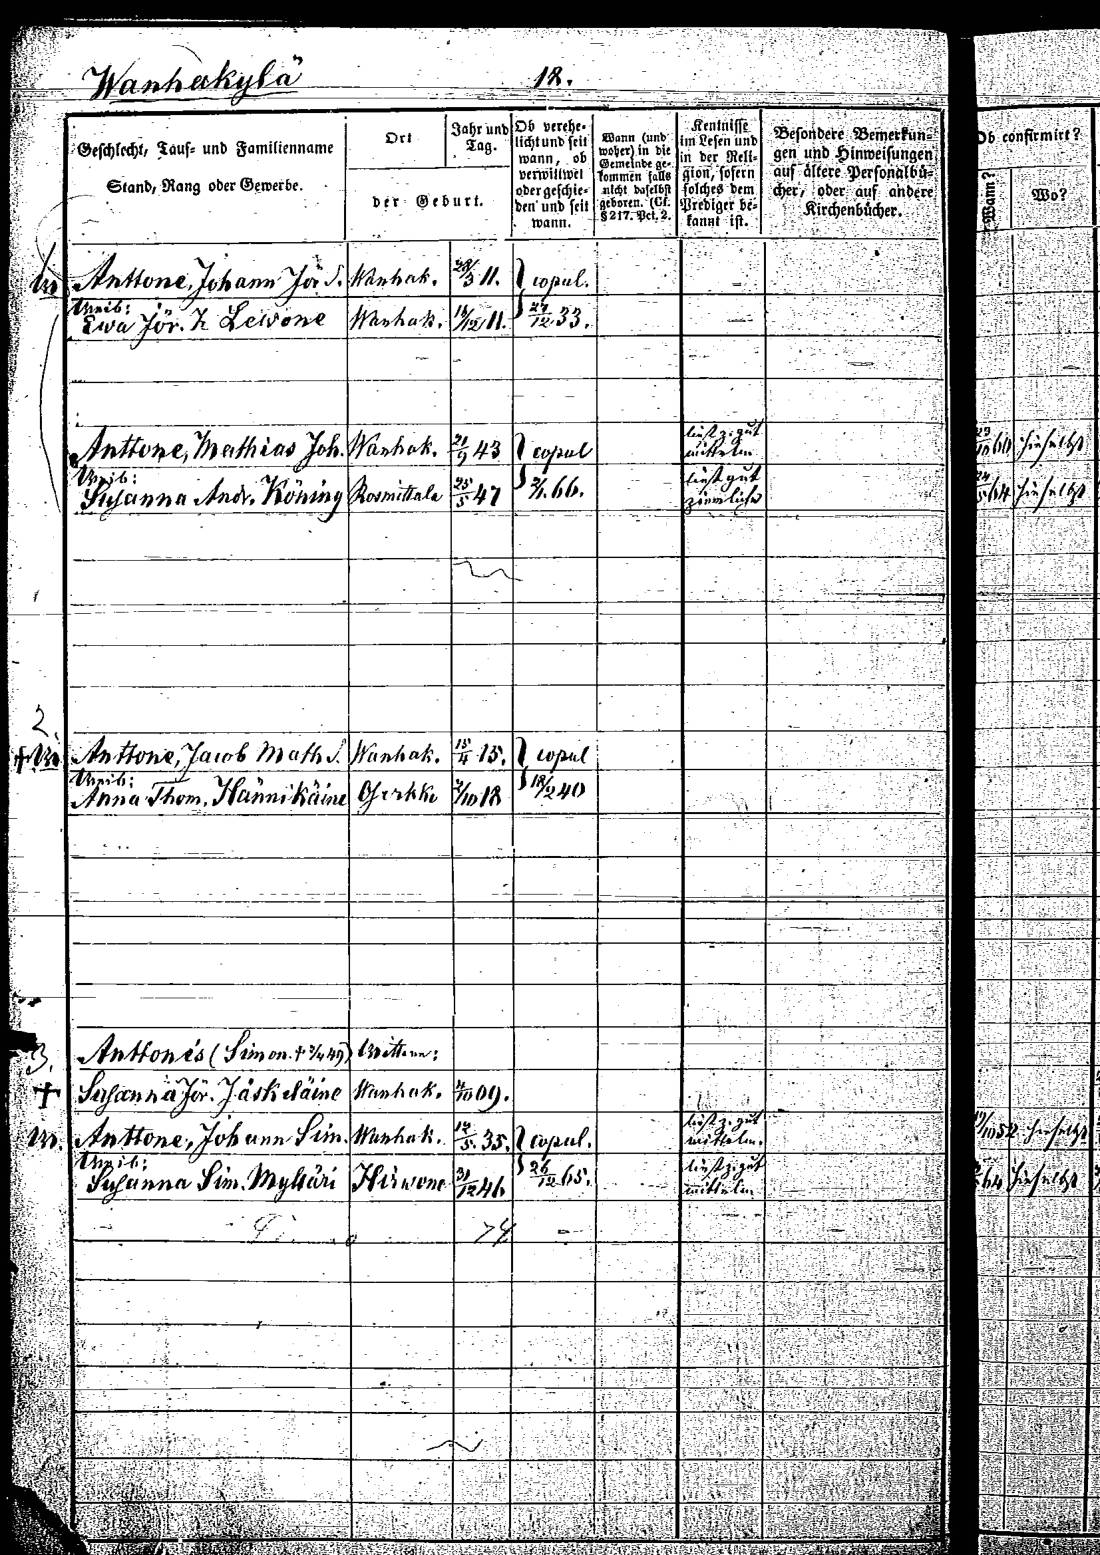 Wanhakylä 12.
Geschlecht, Tauf- und Familienname
Stand, Rang oder Gewerbe.
Ort
Jahr und
Tag.
der Geburt.
Ob verehe-
licht und seit
wann, ob
verwittwet
oder geschie-
den und seit
wann.
Wann (und
woher) in die
Gemeinde ge-
kommen falls
nicht daselbst
geboren. (Cf.
§ 217. Pct. 2.
Kentnisse
im Lesen und
in der Reli-
gion, sofern
solches dem
Prediger be-
kannt ist.
Besondere Bemerkun-
gen und Hinweisungen
auf ältere Personalbü-
cher, oder auf andere
Kirchenbücher.
Ob confirmirt?
Wann?
Wo?
Anttone, Johann Jör. S. Wanhak. 28/3 11. copul.
Weib:
Ewa Jör. t. Lewone Wanhak. 12/11. 27/12 33.
Anttone, Mathias Joh. Wanhak. 21/9 43 copul liest z. gut 60 hieselbst
mittelm.
Weib: liest gut
Susanna Andr. Köning Rosmittala 25/5 47 2/1 66. ziemlich 24/5 64 hieselbst
2.
+ W. Anttone, Jacob Math. S. Wanhak. 15/4 15. copul
Weib:
Anna Thom. Hännikäine 2/10 18 18/2 40
3. Anttonés (Simon. + 49) Wittwe:
+ Susanna Jör. Jäskeläine Wanhak. 4/10 09.
W. Anttone, Johann Sim. Wanhak. 12/5. 35. copul. liest z. gut 10 52 hieselbst
mittelm.
Weib: liest z. gut
Susanna Sim. Mykäri Hirwone 31/12 46 26/12 65. mittelm 64 hieselbst
74